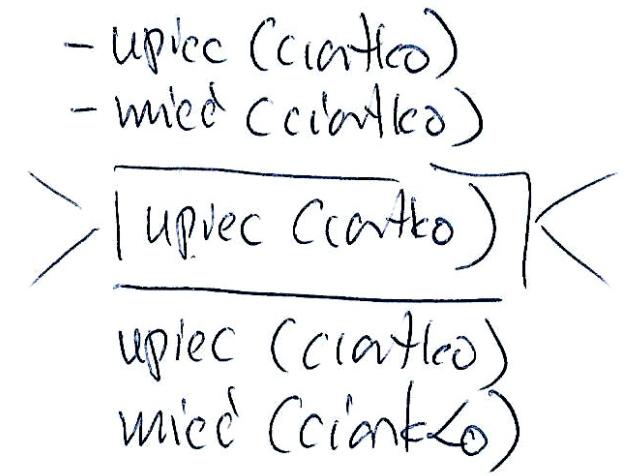 - upiec (ciastko)
- mieć (ciastko)
upiec (ciastko)
upiec (ciastko)
mieć (ciastko)